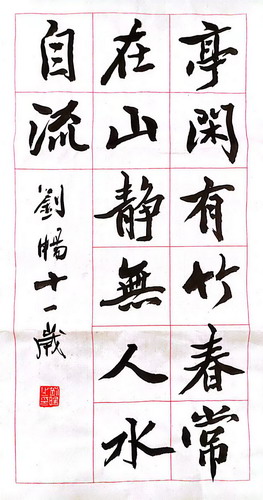 亭閑有竹春常
在山靜無人水
自流
劉暢十一歲